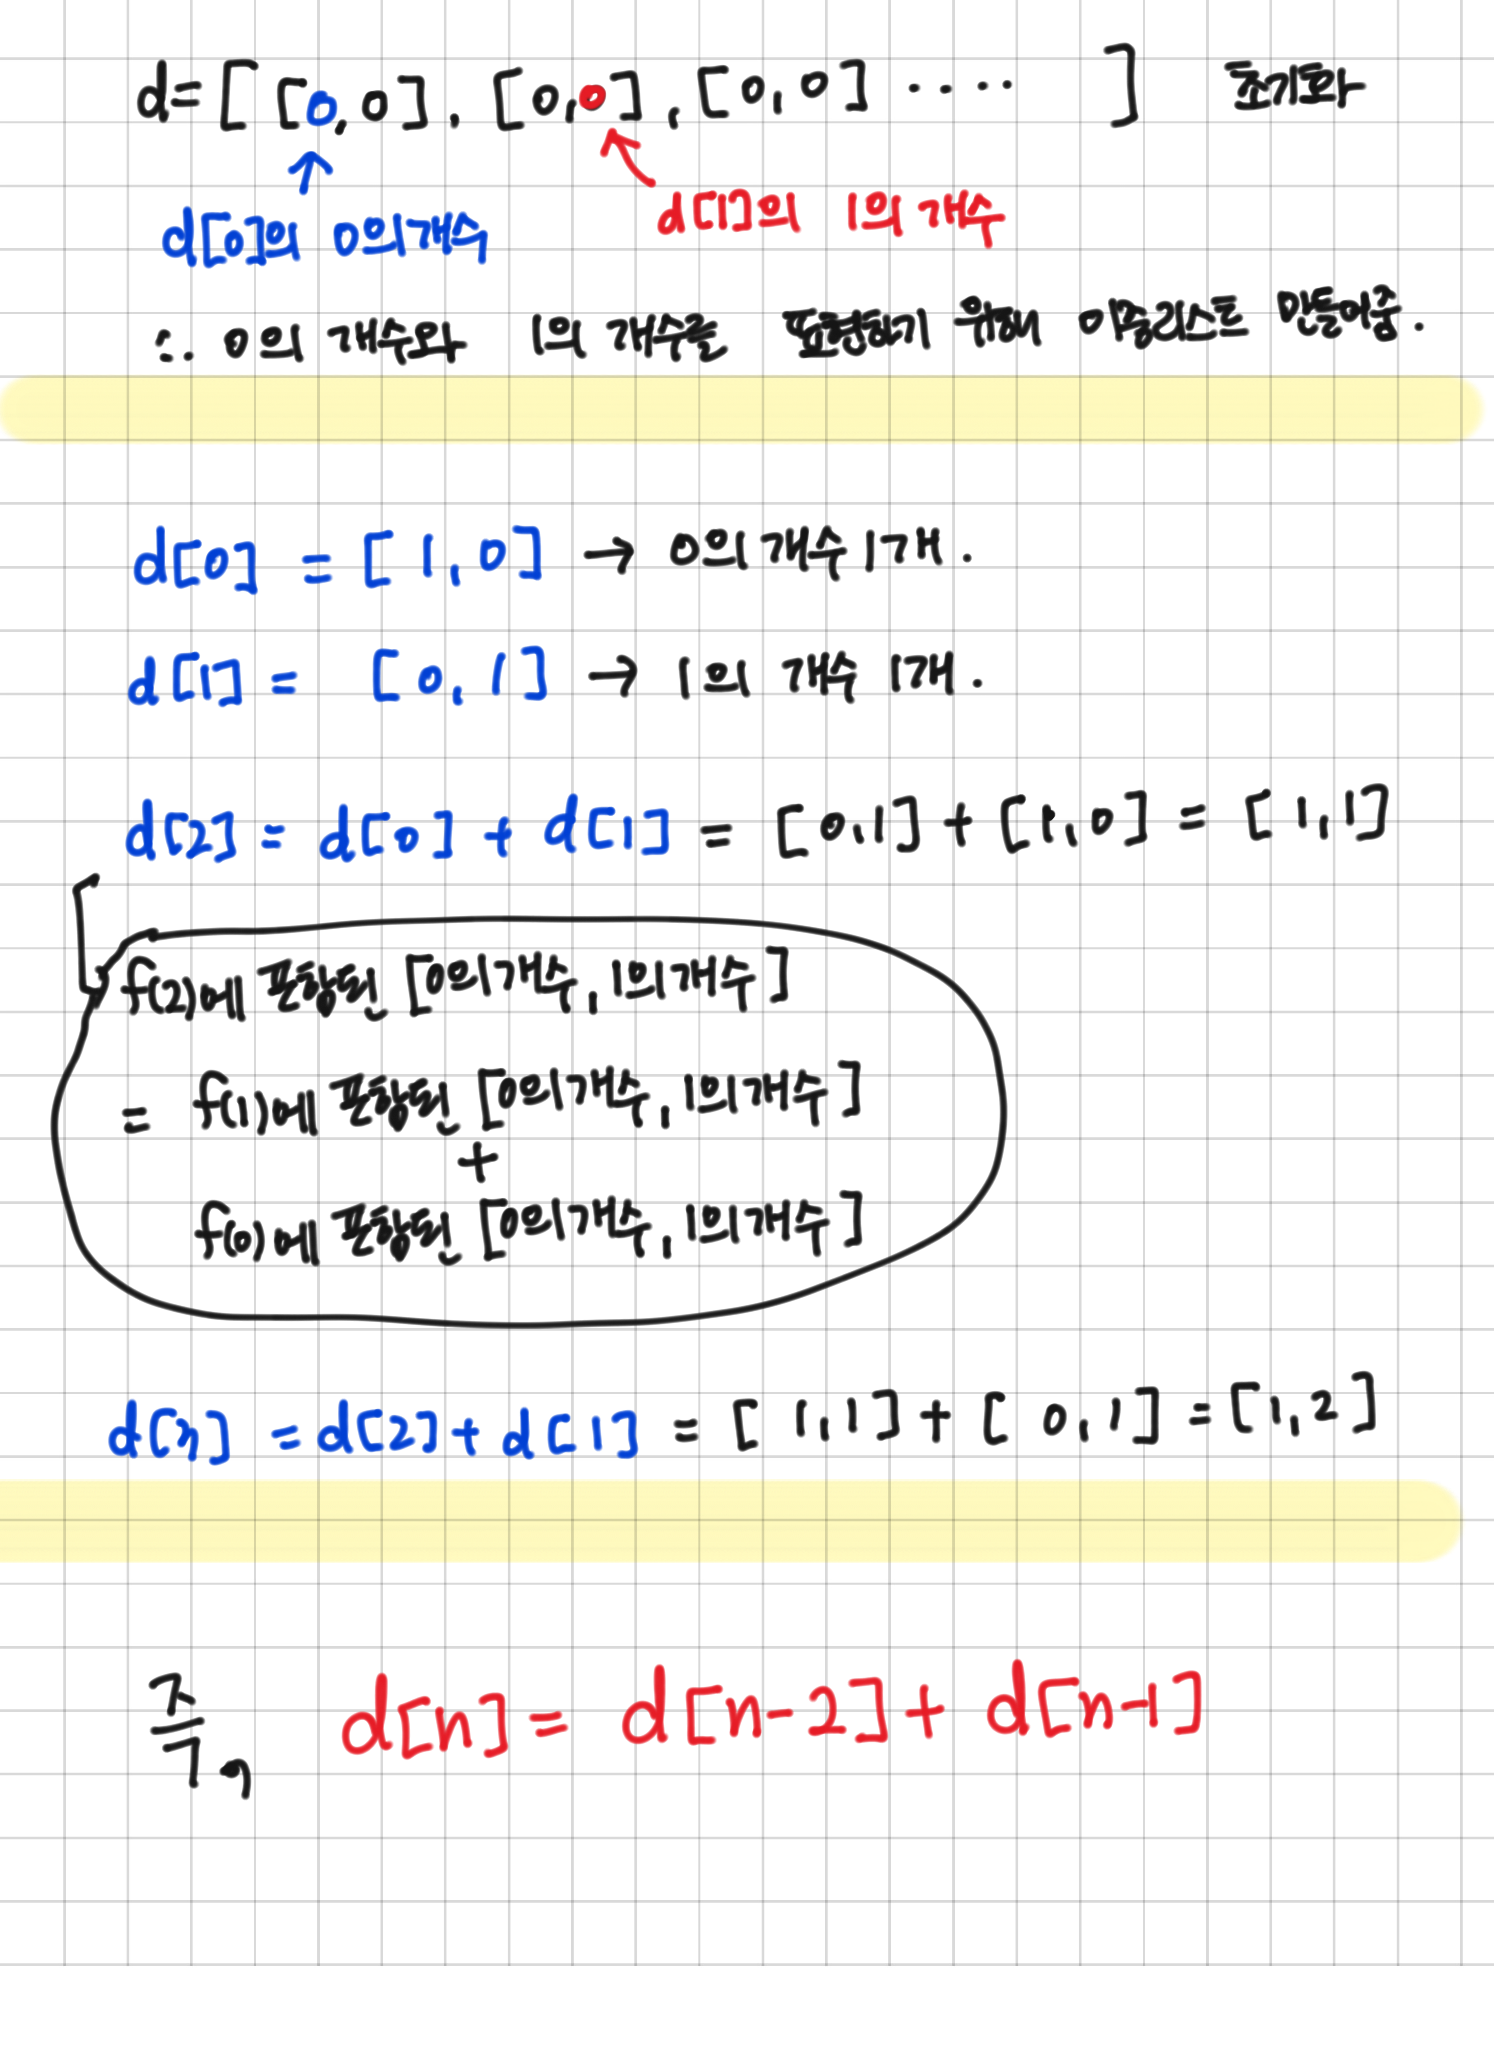 d= [ [0, 0], [0, 0], [0, 0] ····· ] 초기화
d[0]의 0의 개수
d[1]의 1의 개수
∴ 0의 개수와 1의 개수를 표현하기 위해 이중리스트 만들어줌.
d[0] = [1, 0] → 0의 개수 1개.
d[1] = [0, 1] → 1의 개수 1개.
d[2] = d[0] + d[1] = [0, 1] + [1, 0] = [1, 1]
f(2)에 포함된 [0의 개수, 1의 개수]
= f(1)에 포함된 [0의 개수, 1의 개수]
+
f(0)에 포함된 [0의 개수, 1의 개수]
d[3] = d[2] + d[1] = [1, 1] + [0, 1] = [1, 2]
즉, d[n] = d[n-2] + d[n-1]